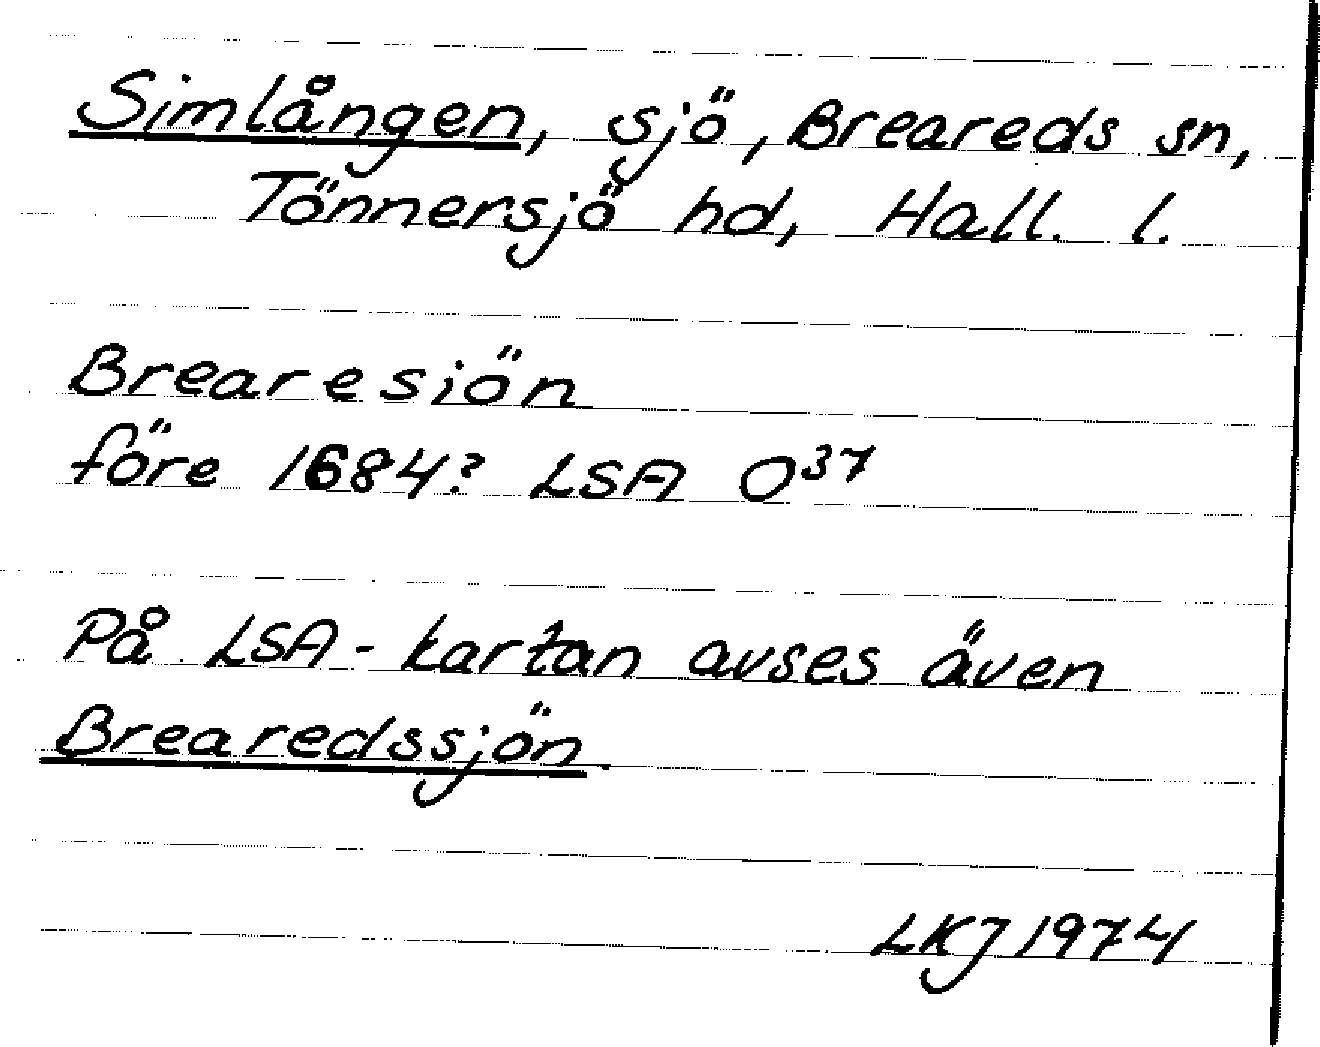 Simlången, sjö, Breareds sn,
Tönnersjö hd, Hall. l.
Brearesiön
före 1684? LSA O³⁷
På LSA-kartan avses även
Brearedssjön
LKJ 1974